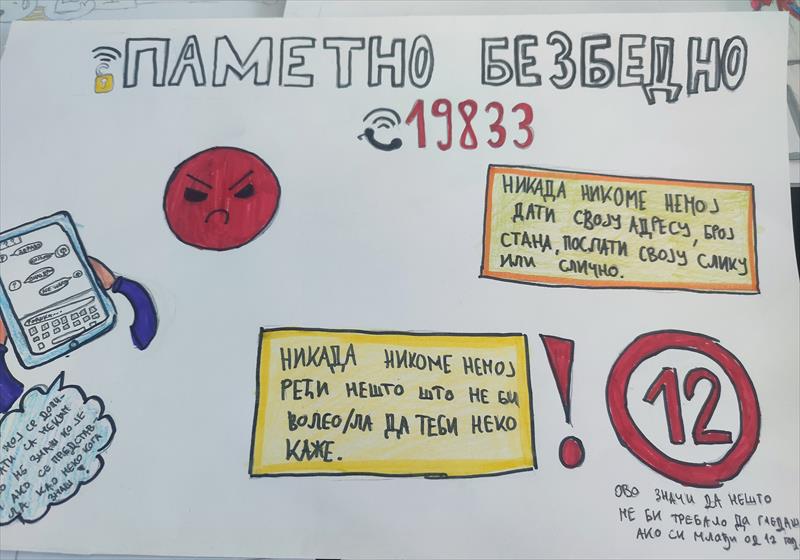 ПАМЕТНО БЕЗБЕДНО
19833
НИКАДА НИКОМЕ НЕМОЈ
ДАТИ СВОЈУ АДРЕСУ, БРОЈ
СТАНА, ПОСЛАТИ СВОЈУ СЛИКУ
ИЛИ СЛИЧНО.
НИКАДА НИКОМЕ НЕМОЈ
РЕЋИ НЕШТО ШТО НЕ БИ
ВОЛЕО/ЛА ДА ТЕБИ НЕКО
КАЖЕ.
!
12
ОВО ЗНАЧИ ДА НЕШТО
НЕ БИ ТРЕБАЛО ДА ГЛЕДАШ
АКО СИ МЛАЂИ ОД 12 ГОД.
МОЈ СЕ
СА НЕКИМ
НЕ ЗНАШ КО ЈЕ
АКО СЕ ПРЕДСТАВ-
КАО НЕКО КОГА
ЗНАШ